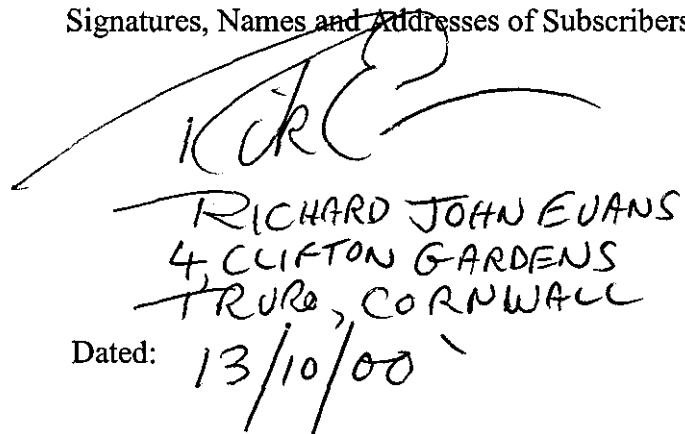 Signatures, Names and Addresses of Subscribers
RICHARD JOHN EVANS
4, CLIFTON GARDENS
TRURO, CORNWALL
Dated: 13/10/00